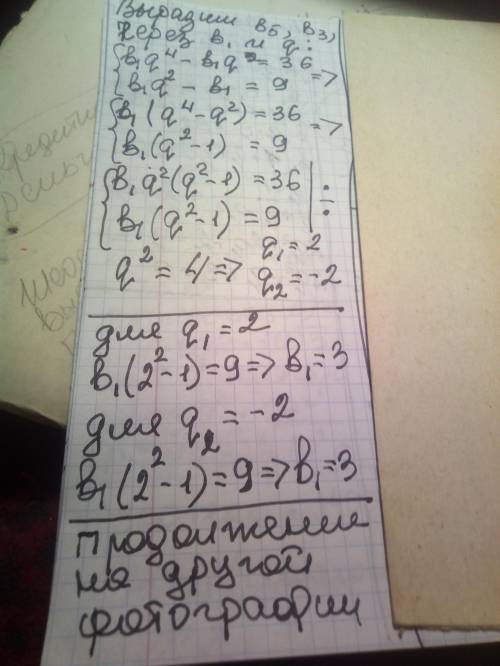 Выразим в₅, в₃,
через в₁ и q:
{ в₁q⁴ - в₁q² = 36 =>
{ в₁q² - в₁ = 9
{ в₁(q⁴-q²) = 36 =>
{ в₁(q²-1) = 9
{ в₁q²(q²-1) = 36 | :
{ в₁(q²-1) = 9
q² = 4 => q₁ = 2
q₂ = -2
для q₁ = 2
в₁(2²-1) = 9 => в₁ = 3
для q₂ = -2
в₁(2²-1) = 9 => в₁ = 3
продолжение
на другой
фотографии